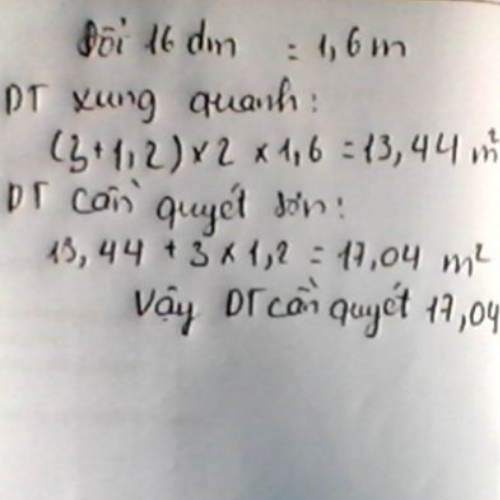 Đổi 16 dm = 1,6 m
DT xung quanh:
(3+1,2)×2 ×1,6 = 13,44 m²
DT cần quyết sơn:
13,44 + 3 × 1,2 = 17,04 m²
Vậy DT cần quyết 17,04